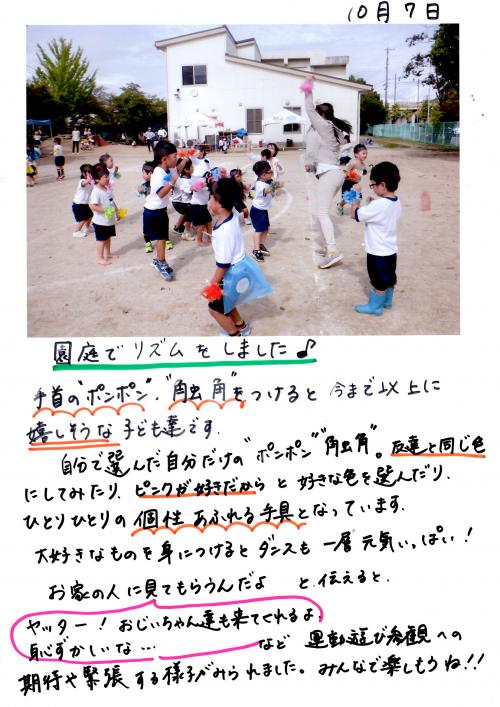 10月7日
園庭でリズムをしました♪
手首の"ポンポン"、"触角"をつけると今まで以上に
嬉しそうな子ども達です。
自分で選んだ自分だけの"ポンポン""触角"。友達と同じ色
にしてみたり、ピンクが好きだからと好きな色を選んだり、
ひとりひとりの個性あふれる手具となっています。
大好きなものを身につけるとダンスも一層元気いっぱい!
お家の人に見てもらうんだよ と、伝えると、
ヤッター! おじいちゃん達も来てくれるよ、
恥ずかしいな… など 運動遊び参観への
期待や緊張する様子がみられました。みんなで楽しもうね!!